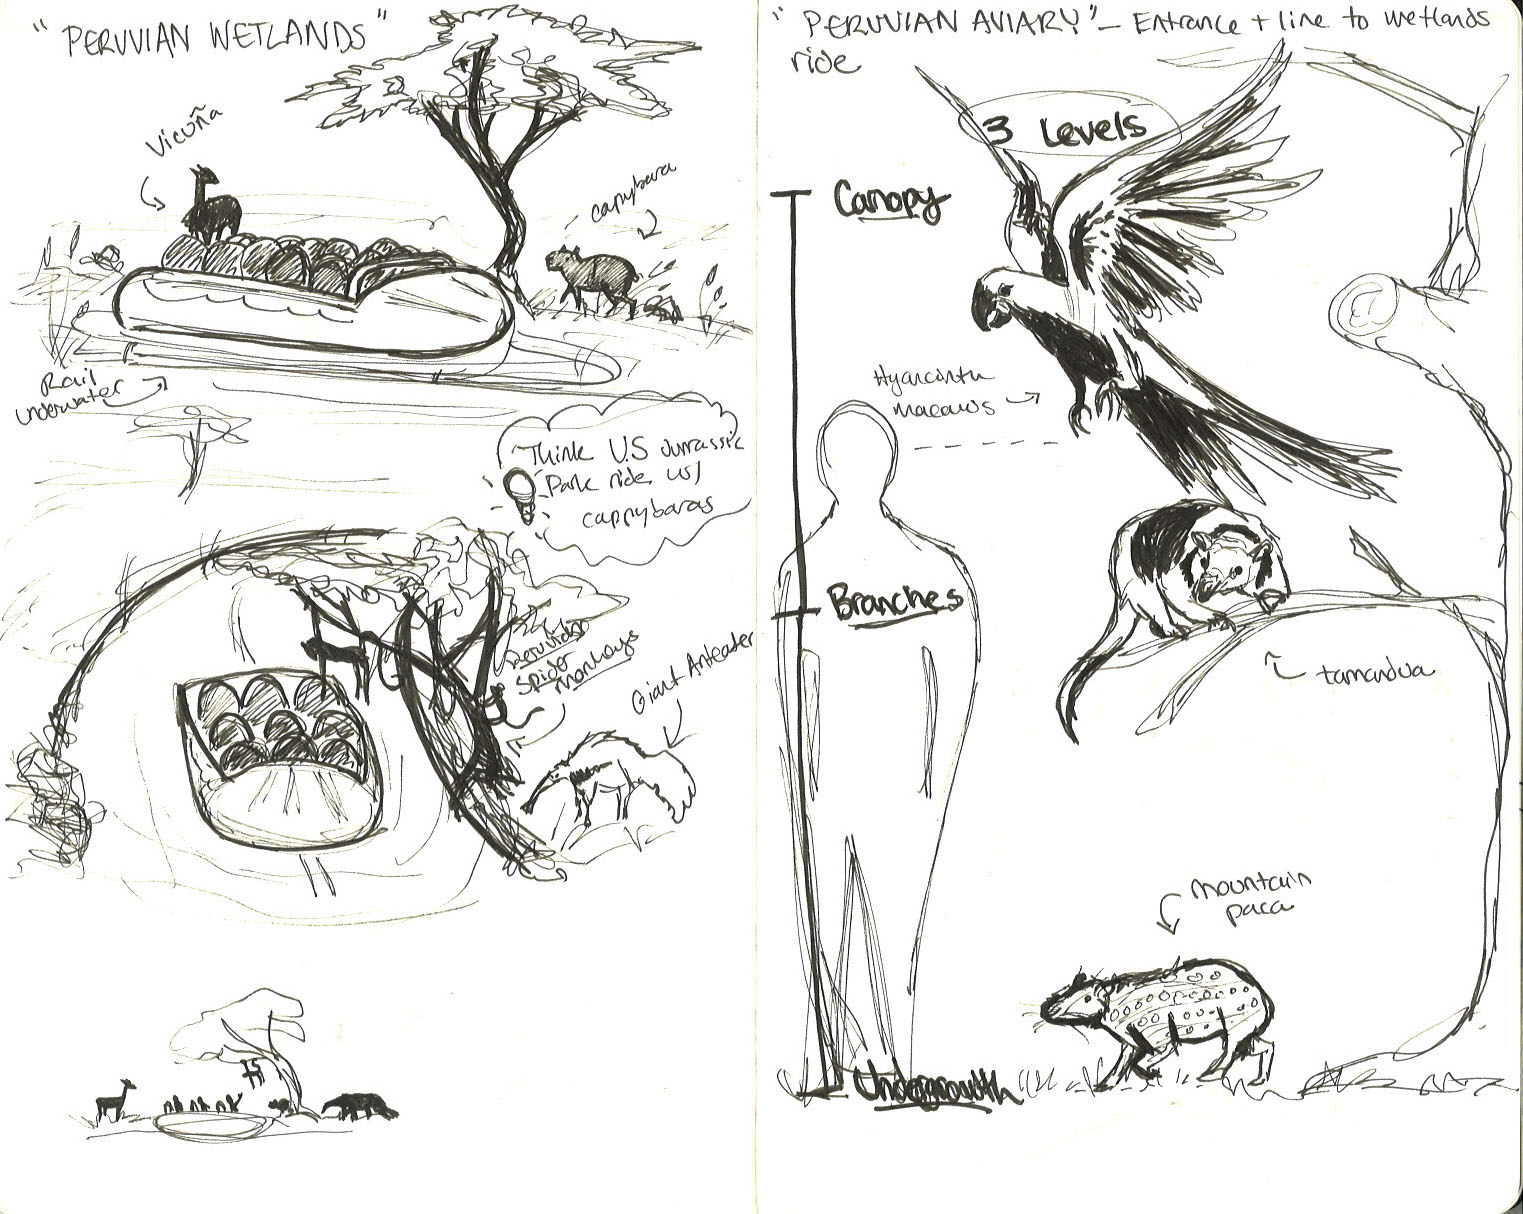 "PERUVIAN WETLANDS"
Vicuña
capybara
Rail
underwater
Think U.S Jurrassic
Park ride, w/
cappybaras
Peruvian
Spider
Monkeys
Giant Anteater
"PERUVIAN AVIARY" - Entrance + line to wetlands
ride
3 Levels
Canopy
Hyancinth
macaws
Branches
tamandua
mountain
paca
Undergrowth